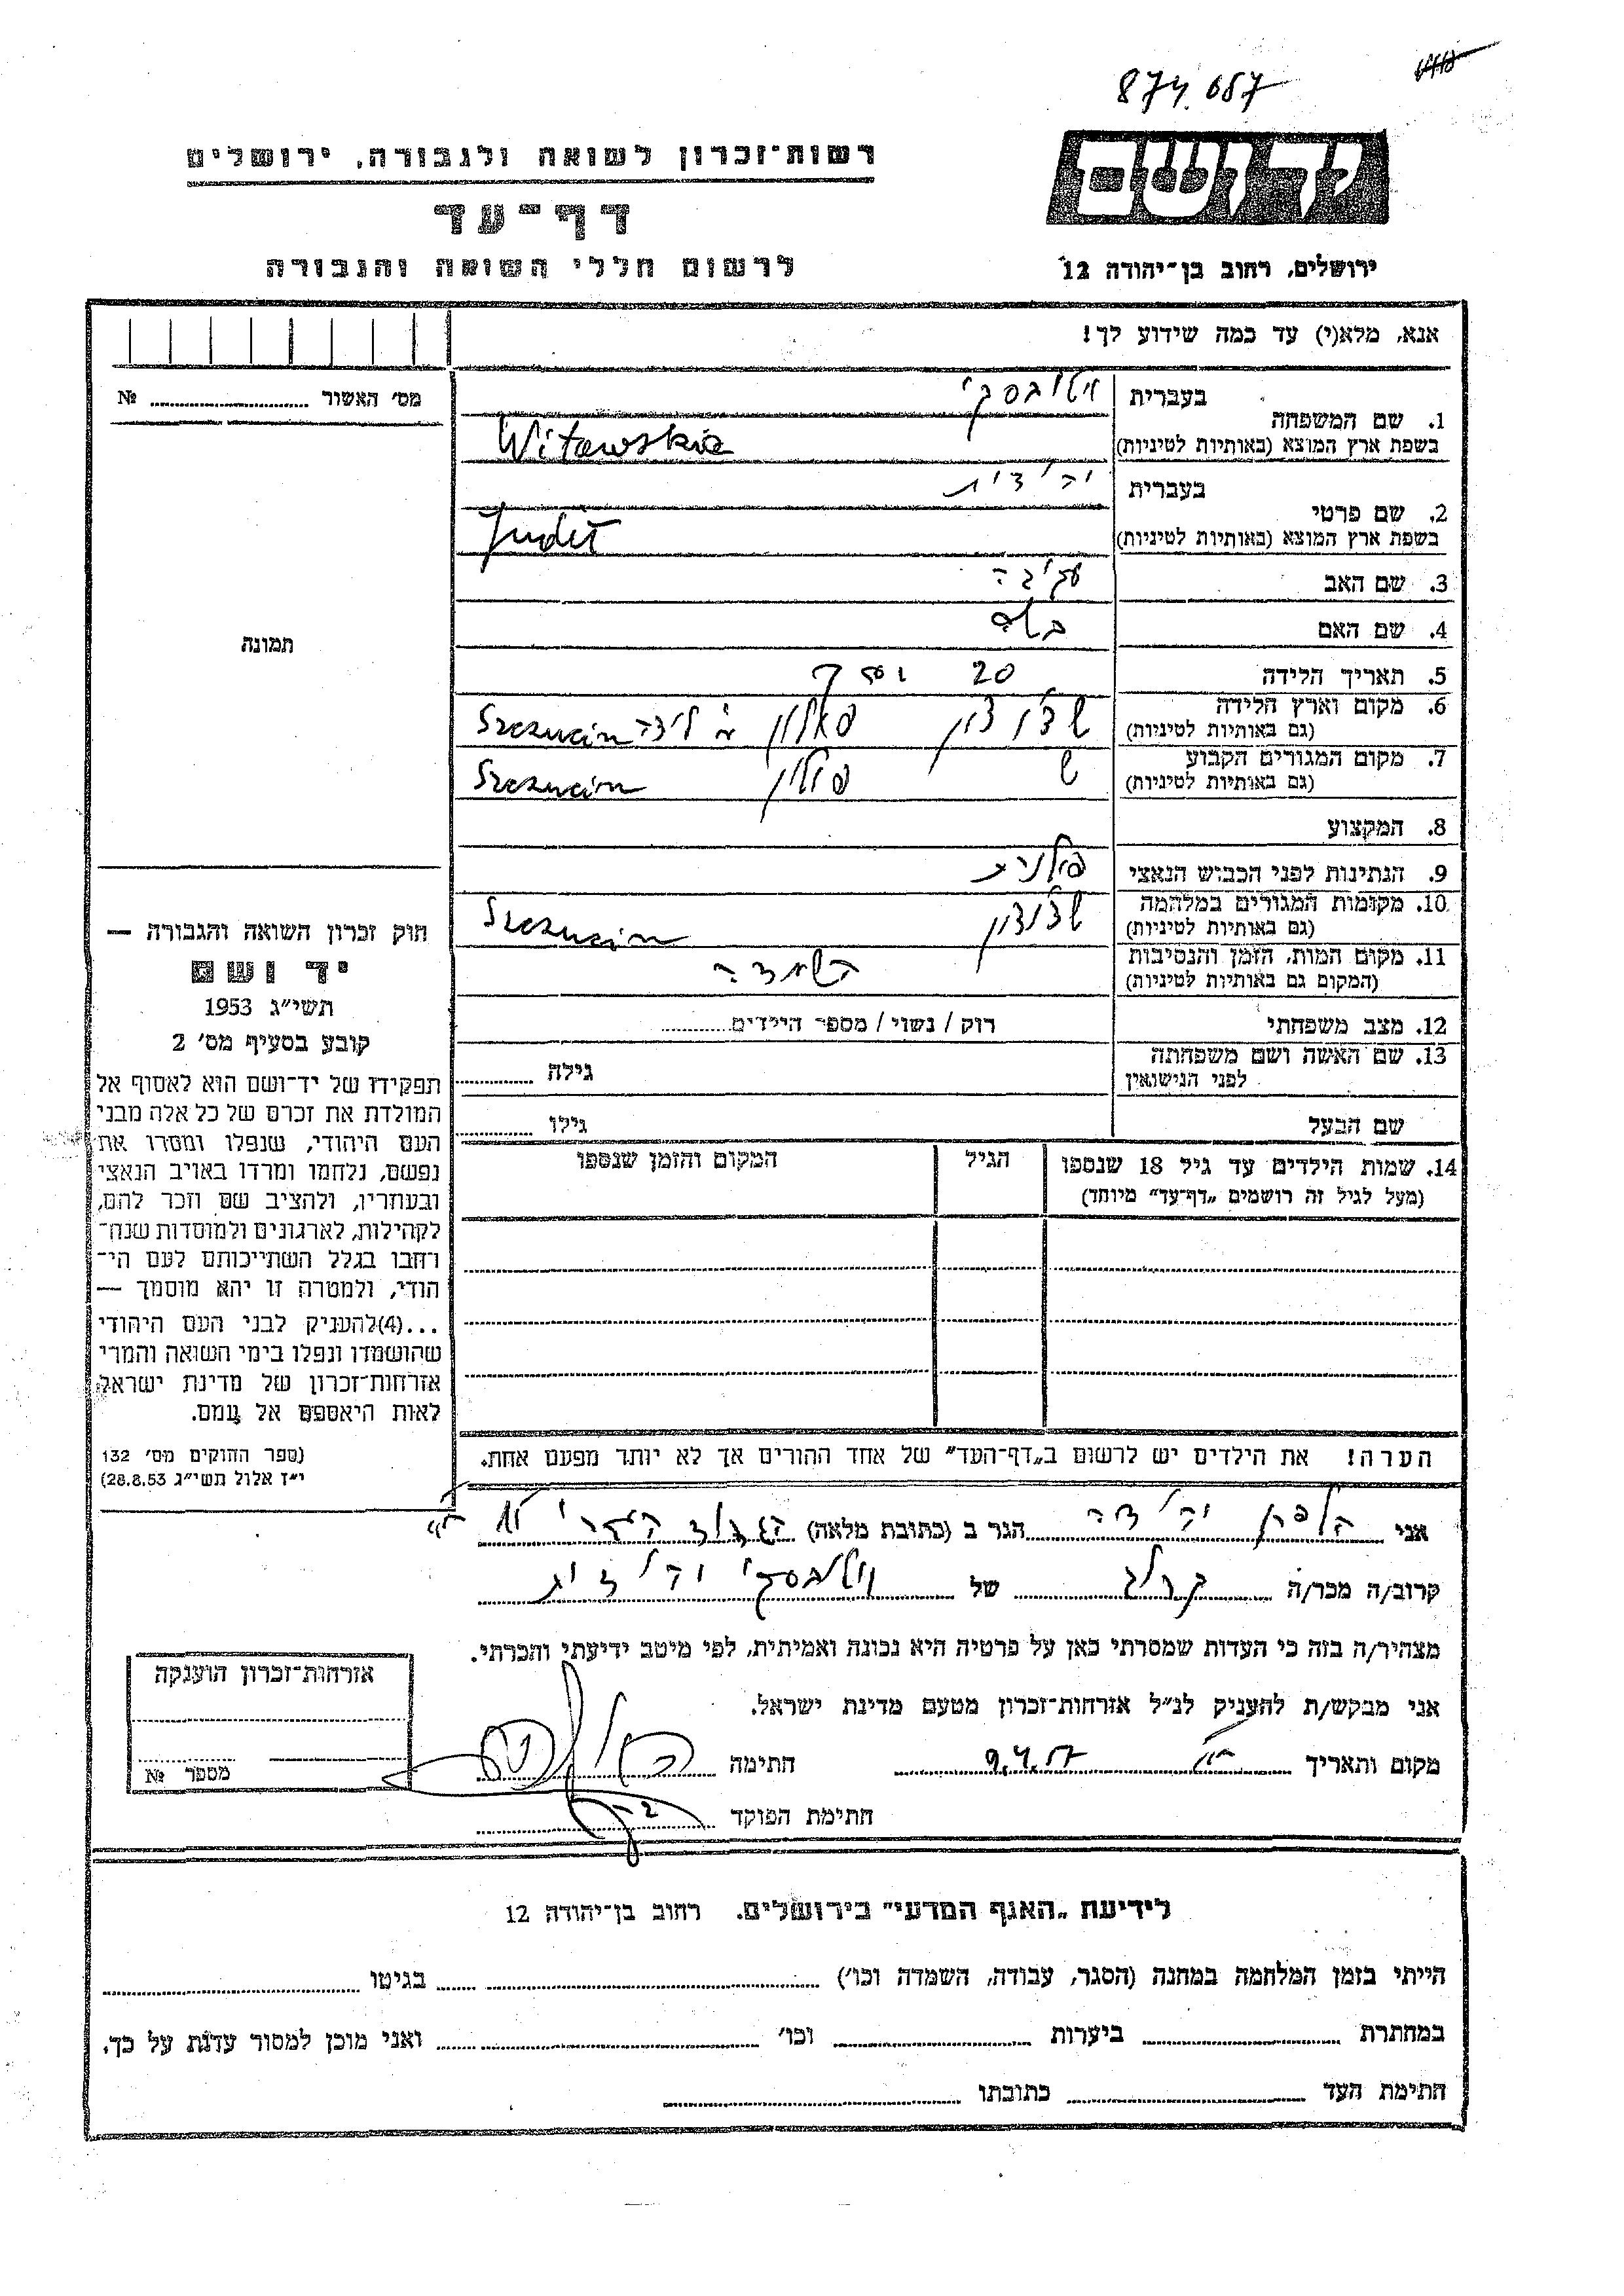 874.657
יד ושם
רשות־זכרון לשואה ולגבורה, ירושלים
דף־עד
לרשום חללי השואה והגבורה
ירושלים, רחוב בן־יהודה 12
אנא, מלא(י) עד כמה שידוע לך!
מס׳ האשור № 
1. שם המשפחה
בעברית
בשפת ארץ המוצא (באותיות לטיניות) Witowskie
2. שם פרטי
בעברית יהודית
בשפת ארץ המוצא (באותיות לטיניות) Judet
3. שם האב עקיבה
4. שם האם
5. תאריך הלידה 20
6. מקום וארץ הלידה
(גם באותיות לטיניות) שצוצין פולין Szczucin
7. מקום המגורים הקבוע
(גם באותיות לטיניות) ש פולין Szczucin
8. המקצוע
9. הנתינות לפני הכבוש הנאצי פולנית
10. מקומות המגורים במלחמה
(גם באותיות לטיניות) שצוצין Szczucin
11. מקום המות, הזמן והנסיבות
(המקום גם באותיות לטיניות) השמדה
12. מצב משפחתי רוק / נשוי / מספר הילדים
13. שם האשה ושם משפחתה
לפני הנישואין גילה
שם הבעל גילו
14. שמות הילדים עד גיל 18 שנספו
(מעל לגיל זה רושמים „דף־עד״ מיוחד)
הגיל
המקום והזמן שנספו
הערה! את הילדים יש לרשום ב„דף־העד״ של אחד ההורים אך לא יותר מפעם אחת.
תמונה
חוק זכרון השואה והגבורה —
יד ושם
תשי״ג 1953
קובע בסעיף מס׳ 2
תפקידו של יד־ושם הוא לאסוף אל
המולדת את זכרם של כל אלה מבני
העם היהודי, שנפלו ומסרו את
נפשם, נלחמו ומרדו באויב הנאצי
ובעוזריו, ולהציב שם וזכר להם,
לקהילות, לארגונים ולמוסדות שנח־
רחבו בגלל השתייכותם לעם הי־
הודי, ולמטרה זו יהא מוסמך —
...(4)להעניק לבני העם היהודי
שהושמדו ונפלו בימי השואה והמרי
אזרחות־זכרון של מדינת ישראל,
לאות היאספם אל עמם.
(ספר החוקים מס׳ 132
י״ז אלול תשי״ג 28.8.53)
אני הלפרן יהודה הגר ב (כתובת מלאה)
קרוב/ה מכר/ה קרוב של ויטובסקי יהודית
מצהיר/ה בזה כי העדות שמסרתי כאן על פרטיה היא נכונה ואמיתית, לפי מיטב ידיעתי והכרתי.
אני מבקש/ת להעניק לנ״ל אזרחות־זכרון מטעם מדינת ישראל.
מקום ותאריך 9.4.57 חתימה
חתימת הפוקד
אזרחות־זכרון הוענקה
מספר №
לידיעת „האגף המדעי״ בירושלים, רחוב בן־יהודה 12
הייתי בזמן המלחמה במחנה (הסגר, עבודה, השמדה וכו׳) בגיטו
במחתרת ביערות וכו׳ ואני מוכן למסור עדות על כך.
חתימת העד כתובתו